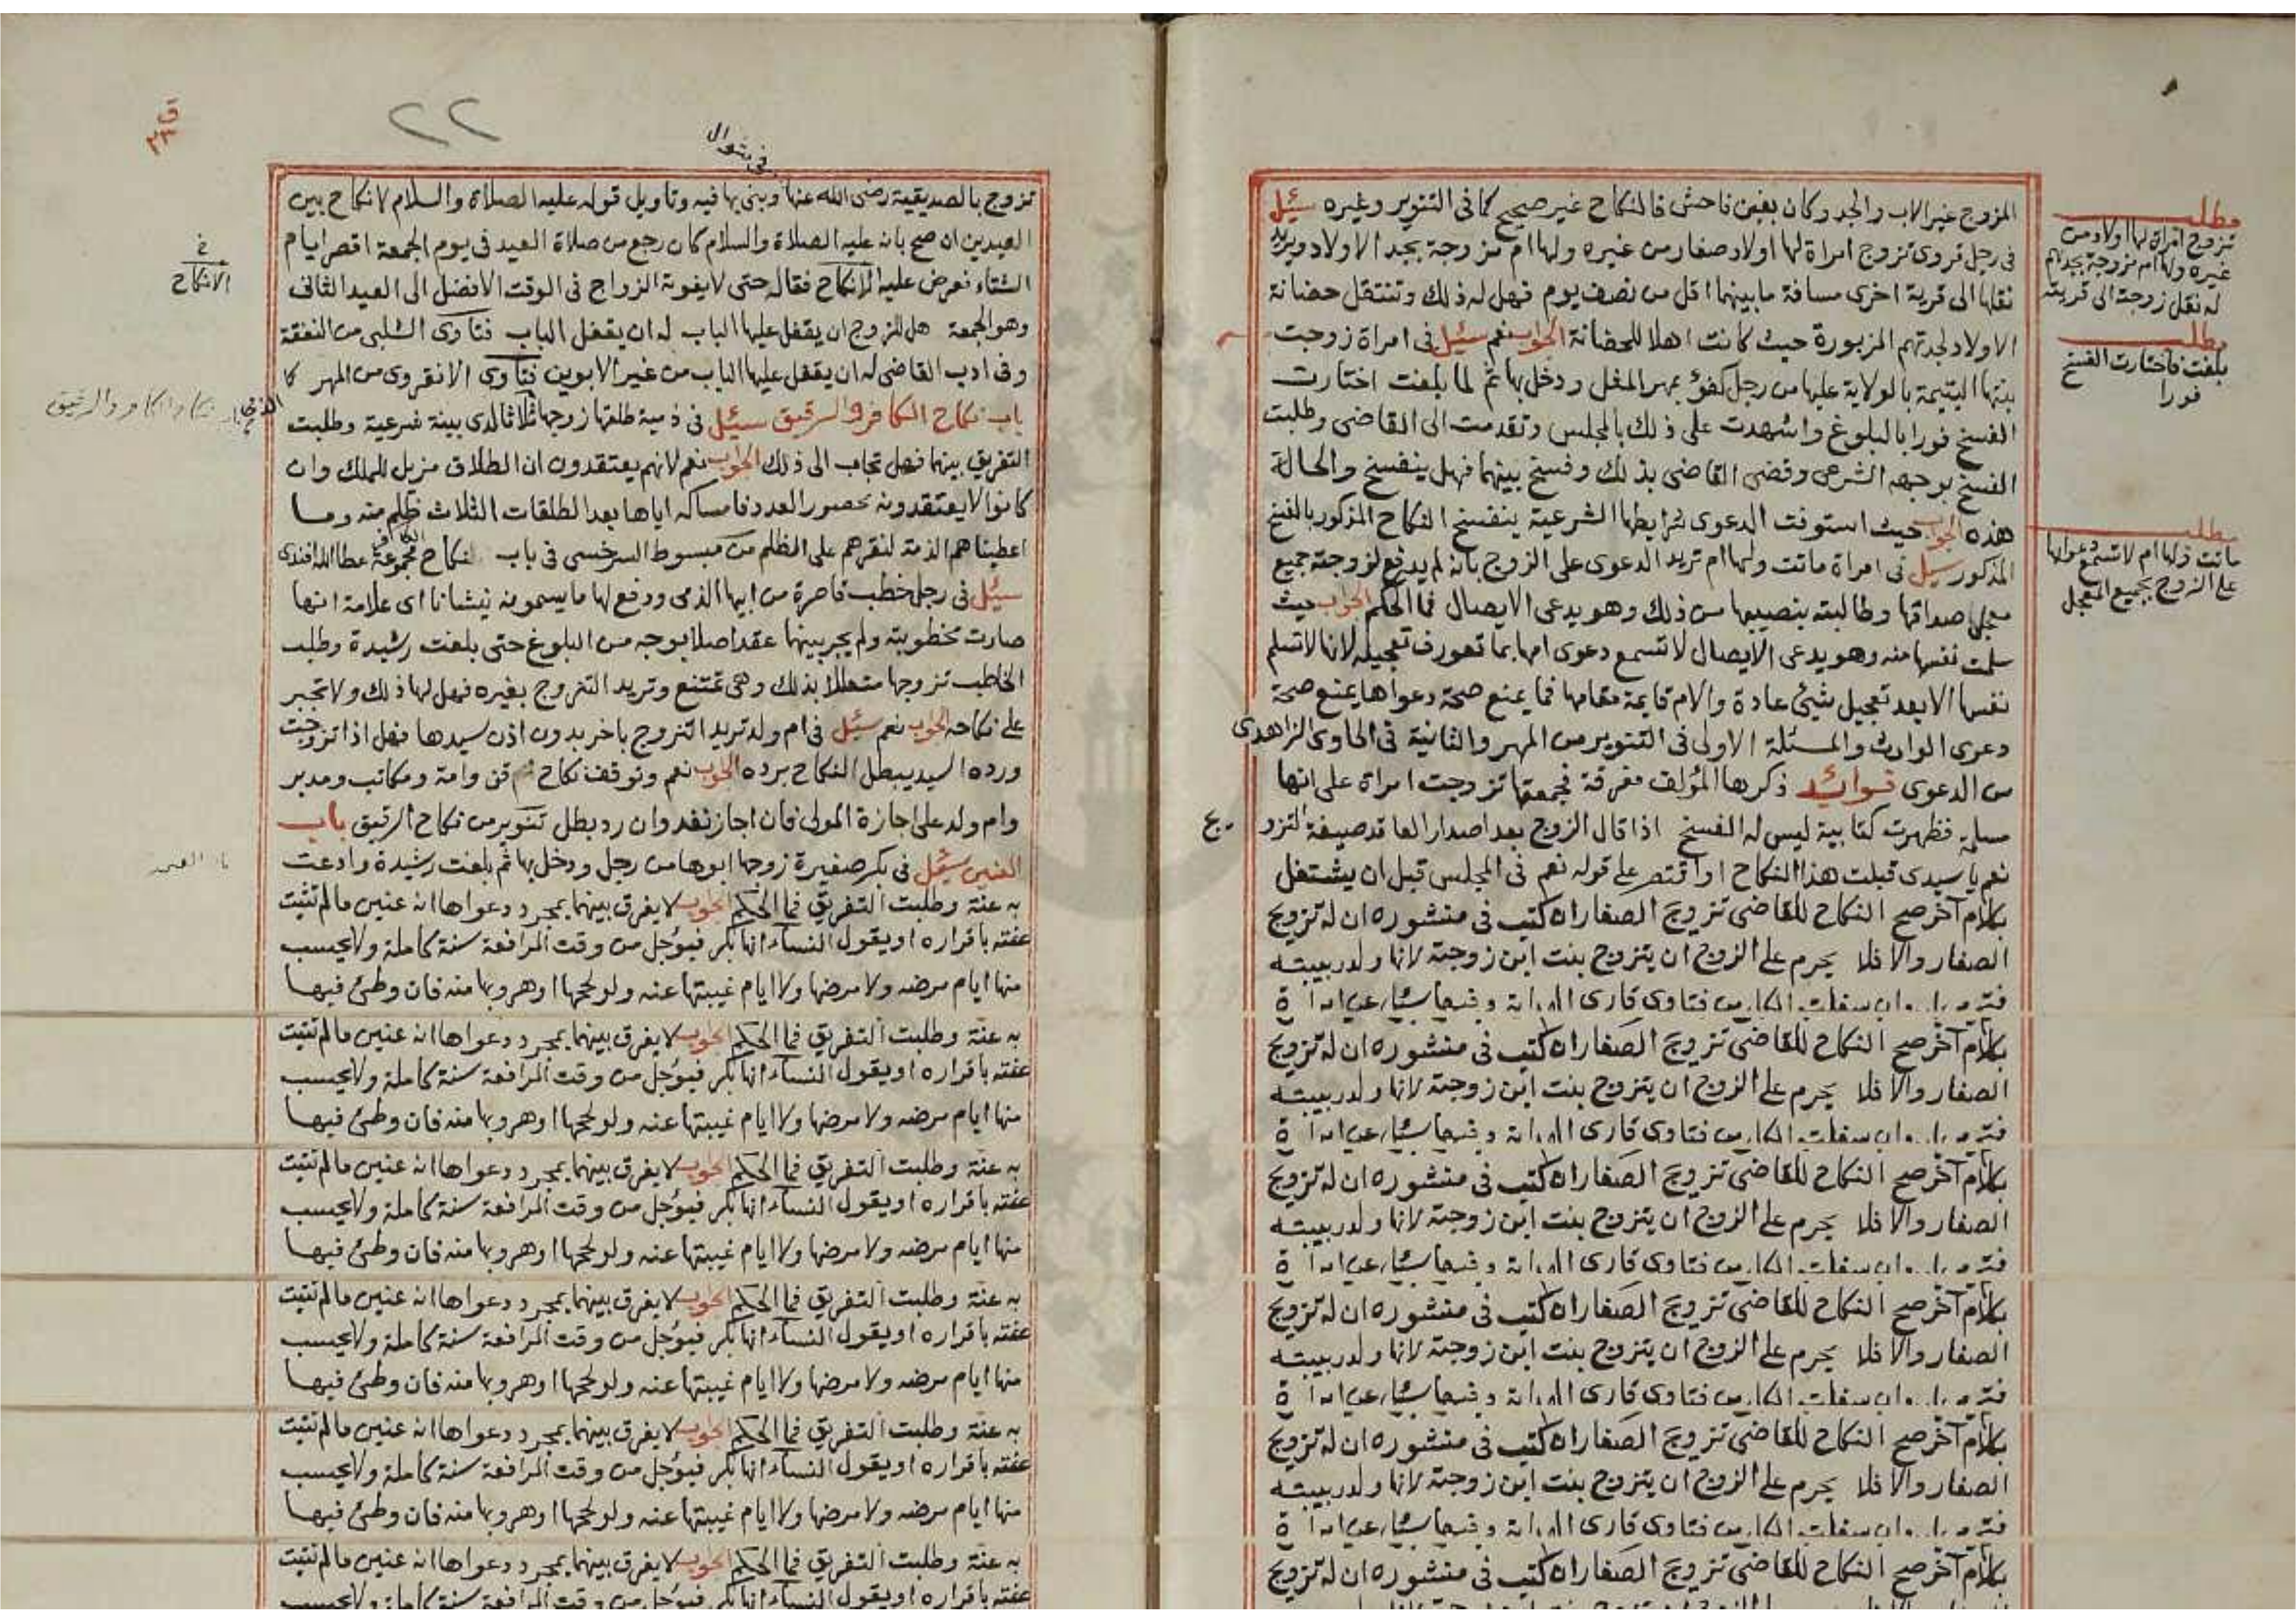 مطلب
تزوج امراة لها اولاد من
غيره ولها ام مزوجة بجدهم
له نقل زوجته الى قريته
مطلب
بلغت فاختارت الفسخ
فورا
مطلب
ماتت ولها ام لا تسمع دعواها
على الزوج بجميع المعجل
المزوج غير الاب والجد وكان بغبن فاحش فالنكاح غير صحيح كما في التنوير وغيره سئل
في رجل قروى تزوج امراة لها اولاد صغار من غيره ولها ام مزوجة بجد الاولاد ويريد
نقلها الى قرية اخرى مسافة ما بينهما اقل من نصف يوم فهل له ذلك وتنتقل حضانة
الاولاد لجدتهم المزبورة حيث كانت اهلا للحضانة الجواب نعم سئل في امراة زوجت
بنتها اليتيمة بالولاية عليها من رجل كفؤ بمهر المثل ودخل بها ثم لما بلغت اختارت
الفسخ فورا بالبلوغ واشهدت على ذلك بالمجلس وتقدمت الى القاضى وطلبت
الفسخ بوجهه الشرعى وقضى القاضى بذلك وفسخ بينهما فهل ينفسخ والحالة
هذه الجواب حيث استوفت الدعوى شرايطها الشرعية ينفسخ النكاح المذكور بالفسخ
المذكور سئل في امراة ماتت ولها ام تريد الدعوى على الزوج بانه لم يدفع لزوجته جميع
معجل صداقها وطالبته بنصيبها من ذلك وهو يدعى الايصال فما الحكم الجواب حيث
سلمت نفسها منه وهو يدعى الايصال لا تسمع دعوى امها بما تعورف تعجيله لانها لا تسلم
نفسها الا بعد تعجيل شيئ عادة والام قايمة مقامها فما يمنع صحة دعواها يمنع صحة
دعوى الوارث والمسئلة الاولى في التنوير من المهر والثانية في الحاوى الزاهدى
من الدعوى فوائد ذكرها المؤلف مفرقة فجمعتها تزوجت امراة على انها
مسلمة فظهرت كتابية ليس له الفسخ اذا قال الزوج بعد اصدار العاقد صيغة التزو يج
نعم يا سيدى قبلت هذا النكاح او اقتصر على قوله نعم في المجلس قبل ان يشتغل
بكلام آخر صح النكاح للقاضى تزويج الصغار ان كتب في منشوره ان له تزويج
الصغار والا فلا يحرم على الزوج ان يتزوج بنت ابن زوجته لانها ولد ربيبته
فتاوى قارى
بكلام آخر صح النكاح للقاضى تزويج الصغار ان كتب في منشوره ان له تزويج
الصغار والا فلا يحرم على الزوج ان يتزوج بنت ابن زوجته لانها ولد ربيبته
فتاوى قارى
بكلام آخر صح النكاح للقاضى تزويج الصغار ان كتب في منشوره ان له تزويج
الصغار والا فلا يحرم على الزوج ان يتزوج بنت ابن زوجته لانها ولد ربيبته
فتاوى قارى
بكلام آخر صح النكاح للقاضى تزويج الصغار ان كتب في منشوره ان له تزويج
الصغار والا فلا يحرم على الزوج ان يتزوج بنت ابن زوجته لانها ولد ربيبته
فتاوى قارى
بكلام آخر صح النكاح للقاضى تزويج الصغار ان كتب في منشوره ان له تزويج
الصغار والا فلا يحرم على الزوج ان يتزوج بنت ابن زوجته لانها ولد ربيبته
فتاوى قارى
بكلام آخر صح النكاح للقاضى تزويج الصغار ان كتب في منشوره ان له تزويج
٢٢
في شوال
تزوج بالصديقية رضى الله عنها وبنى بها فيه وتاويل قوله عليه الصلاة والسلام لا نكاح بين
العيدين ان صح بانه عليه الصلاة والسلام كان رجع من صلاة العيد في يوم الجمعة اقصر ايام
الشتاء فعرض عليه الانكاح فقاله حتى لا يفوته الزواج في الوقت الافضل الى العيد الثانى
وهو الجمعة هل للزوج ان يقفل عليها الباب له ان يقفل الباب فتاوى الشلبى من النفقة
وفى ادب القاضى له ان يقفل عليها الباب من غير الابوين فتاوى الانقروى من المهر
باب نكاح الكافر والرقيق سئل في ذمية طلقها زوجها ثلاثا لدى بينة شرعية وطلبت
التفريق بينهما فهل تجاب الى ذلك الجواب نعم لانهم يعتقدون ان الطلاق مزيل للملك وان
كانوا لا يعتقدونه بحصور العدد فامساكه اياها بعد الطلقات الثلاث ظلم منه وما
اعطيناهم الذمة لنقرهم على الظلم من مبسوط السرخسى في باب نكاح الكافر مجموعة عطاالله افندى
سئل في رجل خطب قاصرة من ابيها الذمى ودفع لها ما يسمونه نيشانا اى علامة انها
صارت مخطوبته ولم يجر بينهما عقد اصلا بوجه من البلوغ حتى بلغت رشيدة وطلب
الخاطب تزوجها متعللا بذلك وهى تمتنع وتريد التزوج بغيره فهل لها ذلك ولا تجبر
على نكاحه الجواب نعم سئل في ام ولد تريد التزوج باخر بدون اذن سيدها فهل اذا تزوجت
ورده السيد يبطل النكاح برده الجواب نعم وتوقف نكاح قن وامة ومكاتب ومدبر
وام ولد على اجازة المولى فان اجاز نفذ وان رد بطل تنوير من نكاح الرقيق باب
العنين سئل في بكر صغيرة زوجها ابوها من رجل ودخل بها ثم بلغت رشيدة وادعت
به عنة وطلبت التفريق فما الحكم الجواب لا يفرق بينهما بمجرد دعواها انه عنين مالم تثبت
عنته باقراره او يقول النساء انها بكر فيؤجل من وقت المرافعة سنة كاملة ولا يحسب
منها ايام مرضه ولا مرضها ولا ايام غيبتها عنه ولو لحجها او هروبها منه فان وطئ فيها
به عنة وطلبت التفريق فما الحكم الجواب لا يفرق بينهما بمجرد دعواها انه عنين مالم تثبت
عنته باقراره او يقول النساء انها بكر فيؤجل من وقت المرافعة سنة كاملة ولا يحسب
منها ايام مرضه ولا مرضها ولا ايام غيبتها عنه ولو لحجها او هروبها منه فان وطئ فيها
به عنة وطلبت التفريق فما الحكم الجواب لا يفرق بينهما بمجرد دعواها انه عنين مالم تثبت
عنته باقراره او يقول النساء انها بكر فيؤجل من وقت المرافعة سنة كاملة ولا يحسب
منها ايام مرضه ولا مرضها ولا ايام غيبتها عنه ولو لحجها او هروبها منه فان وطئ فيها
به عنة وطلبت التفريق فما الحكم الجواب لا يفرق بينهما بمجرد دعواها انه عنين مالم تثبت
عنته باقراره او يقول النساء انها بكر فيؤجل من وقت المرافعة سنة كاملة ولا يحسب
منها ايام مرضه ولا مرضها ولا ايام غيبتها عنه ولو لحجها او هروبها منه فان وطئ فيها
به عنة وطلبت التفريق فما الحكم الجواب لا يفرق بينهما بمجرد دعواها انه عنين مالم تثبت
عنته باقراره او يقول النساء انها بكر فيؤجل من وقت المرافعة سنة كاملة ولا يحسب
منها ايام مرضه ولا مرضها ولا ايام غيبتها عنه ولو لحجها او هروبها منه فان وطئ فيها
به عنة وطلبت التفريق فما الحكم الجواب لا يفرق بينهما بمجرد دعواها انه عنين مالم تثبت
عنته باقراره او يقول النساء انها بكر فيؤجل من وقت المرافعة سنة كاملة ولا يحسب
الانكاح